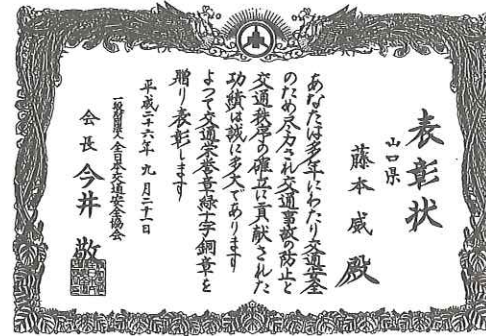 表彰状
山口県
藤本威殿
あなたは多年にわたり交通安全
のため尽力され交通事故の防止と
交通秩序の確立に貢献された
功績は誠に多大であります
よつて交通栄誉章緑十字銅章を
贈り表彰します
平成二十六年九月二十一日
一般財団法人全日本交通安全協会
会長今井敬